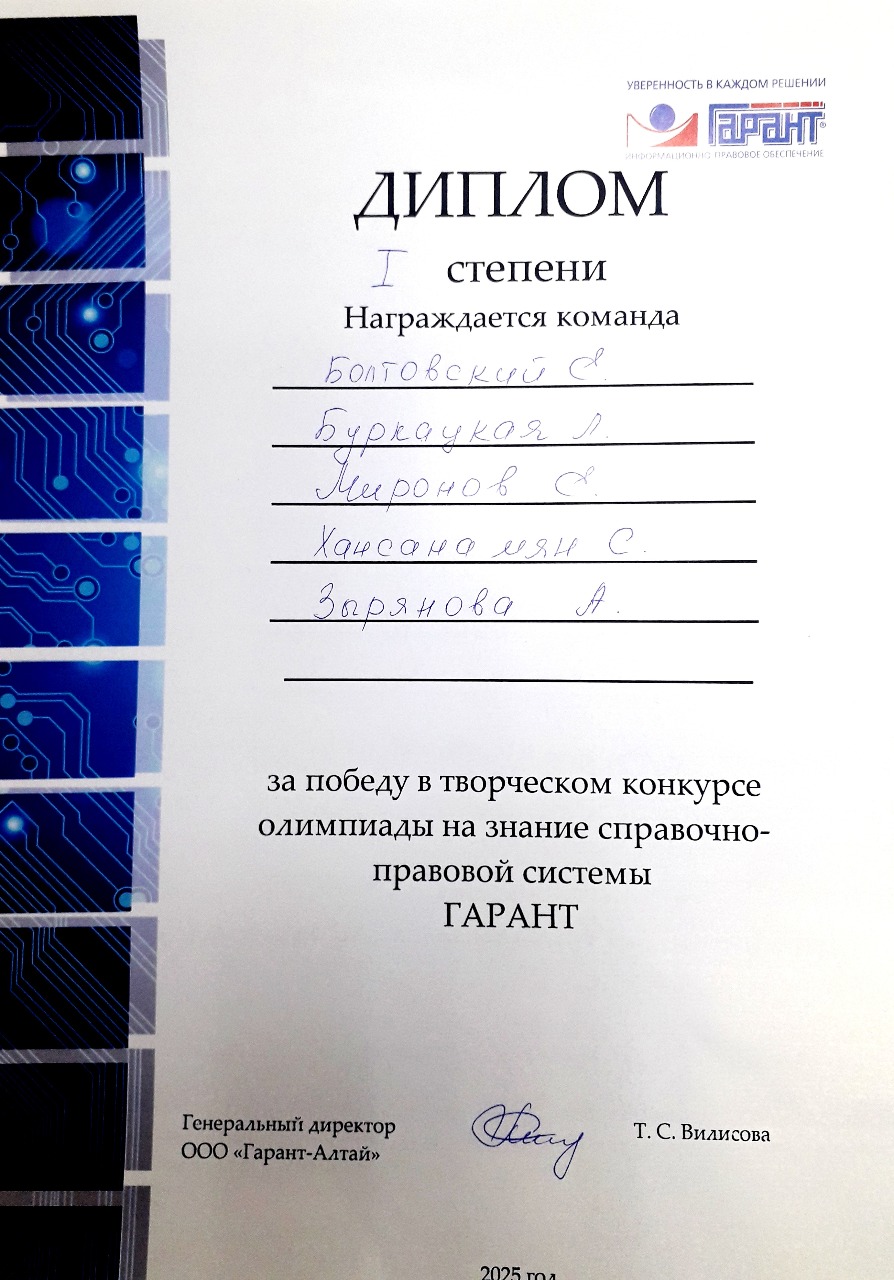 УВЕРЕННОСТЬ В КАЖДОМ РЕШЕНИИ
ГАРАНТ®
ИНФОРМАЦИОННО-ПРАВОВОЕ ОБЕСПЕЧЕНИЕ
ДИПЛОМ
I степени
Награждается команда
Болтовский С.
Буркацкая Л.
Миронов С.
Хансанамян С.
Зырянова А.
за победу в творческом конкурсе
олимпиады на знание справочно-
правовой системы
ГАРАНТ
Генеральный директор
ООО «Гарант-Алтай»
Т. С. Вилисова
2025 год